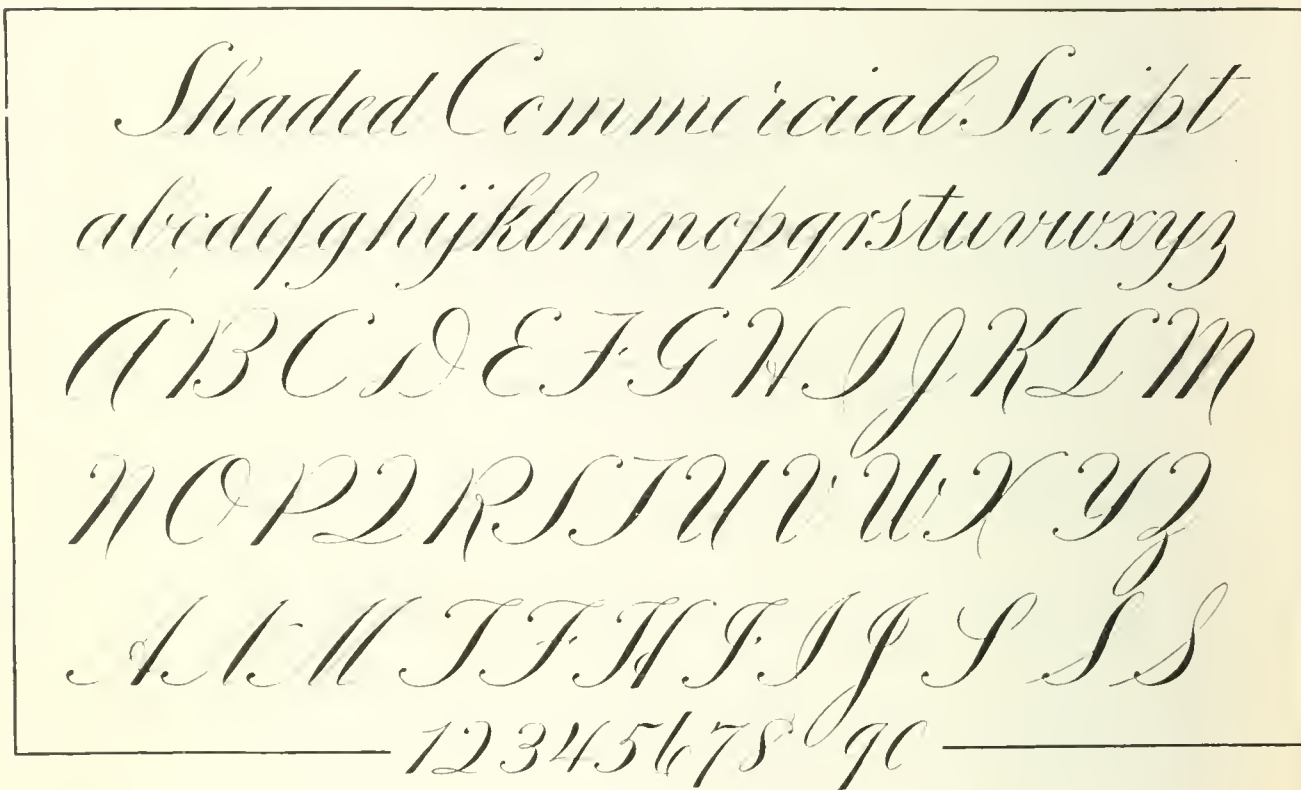 Shaded Commercial Script
abcdefghijklmnopqrstuvwxyz
ABCDEFGHIJKLM
NOPQRSTUVWXYZ
AAMTFHFIJSSS
1234567890